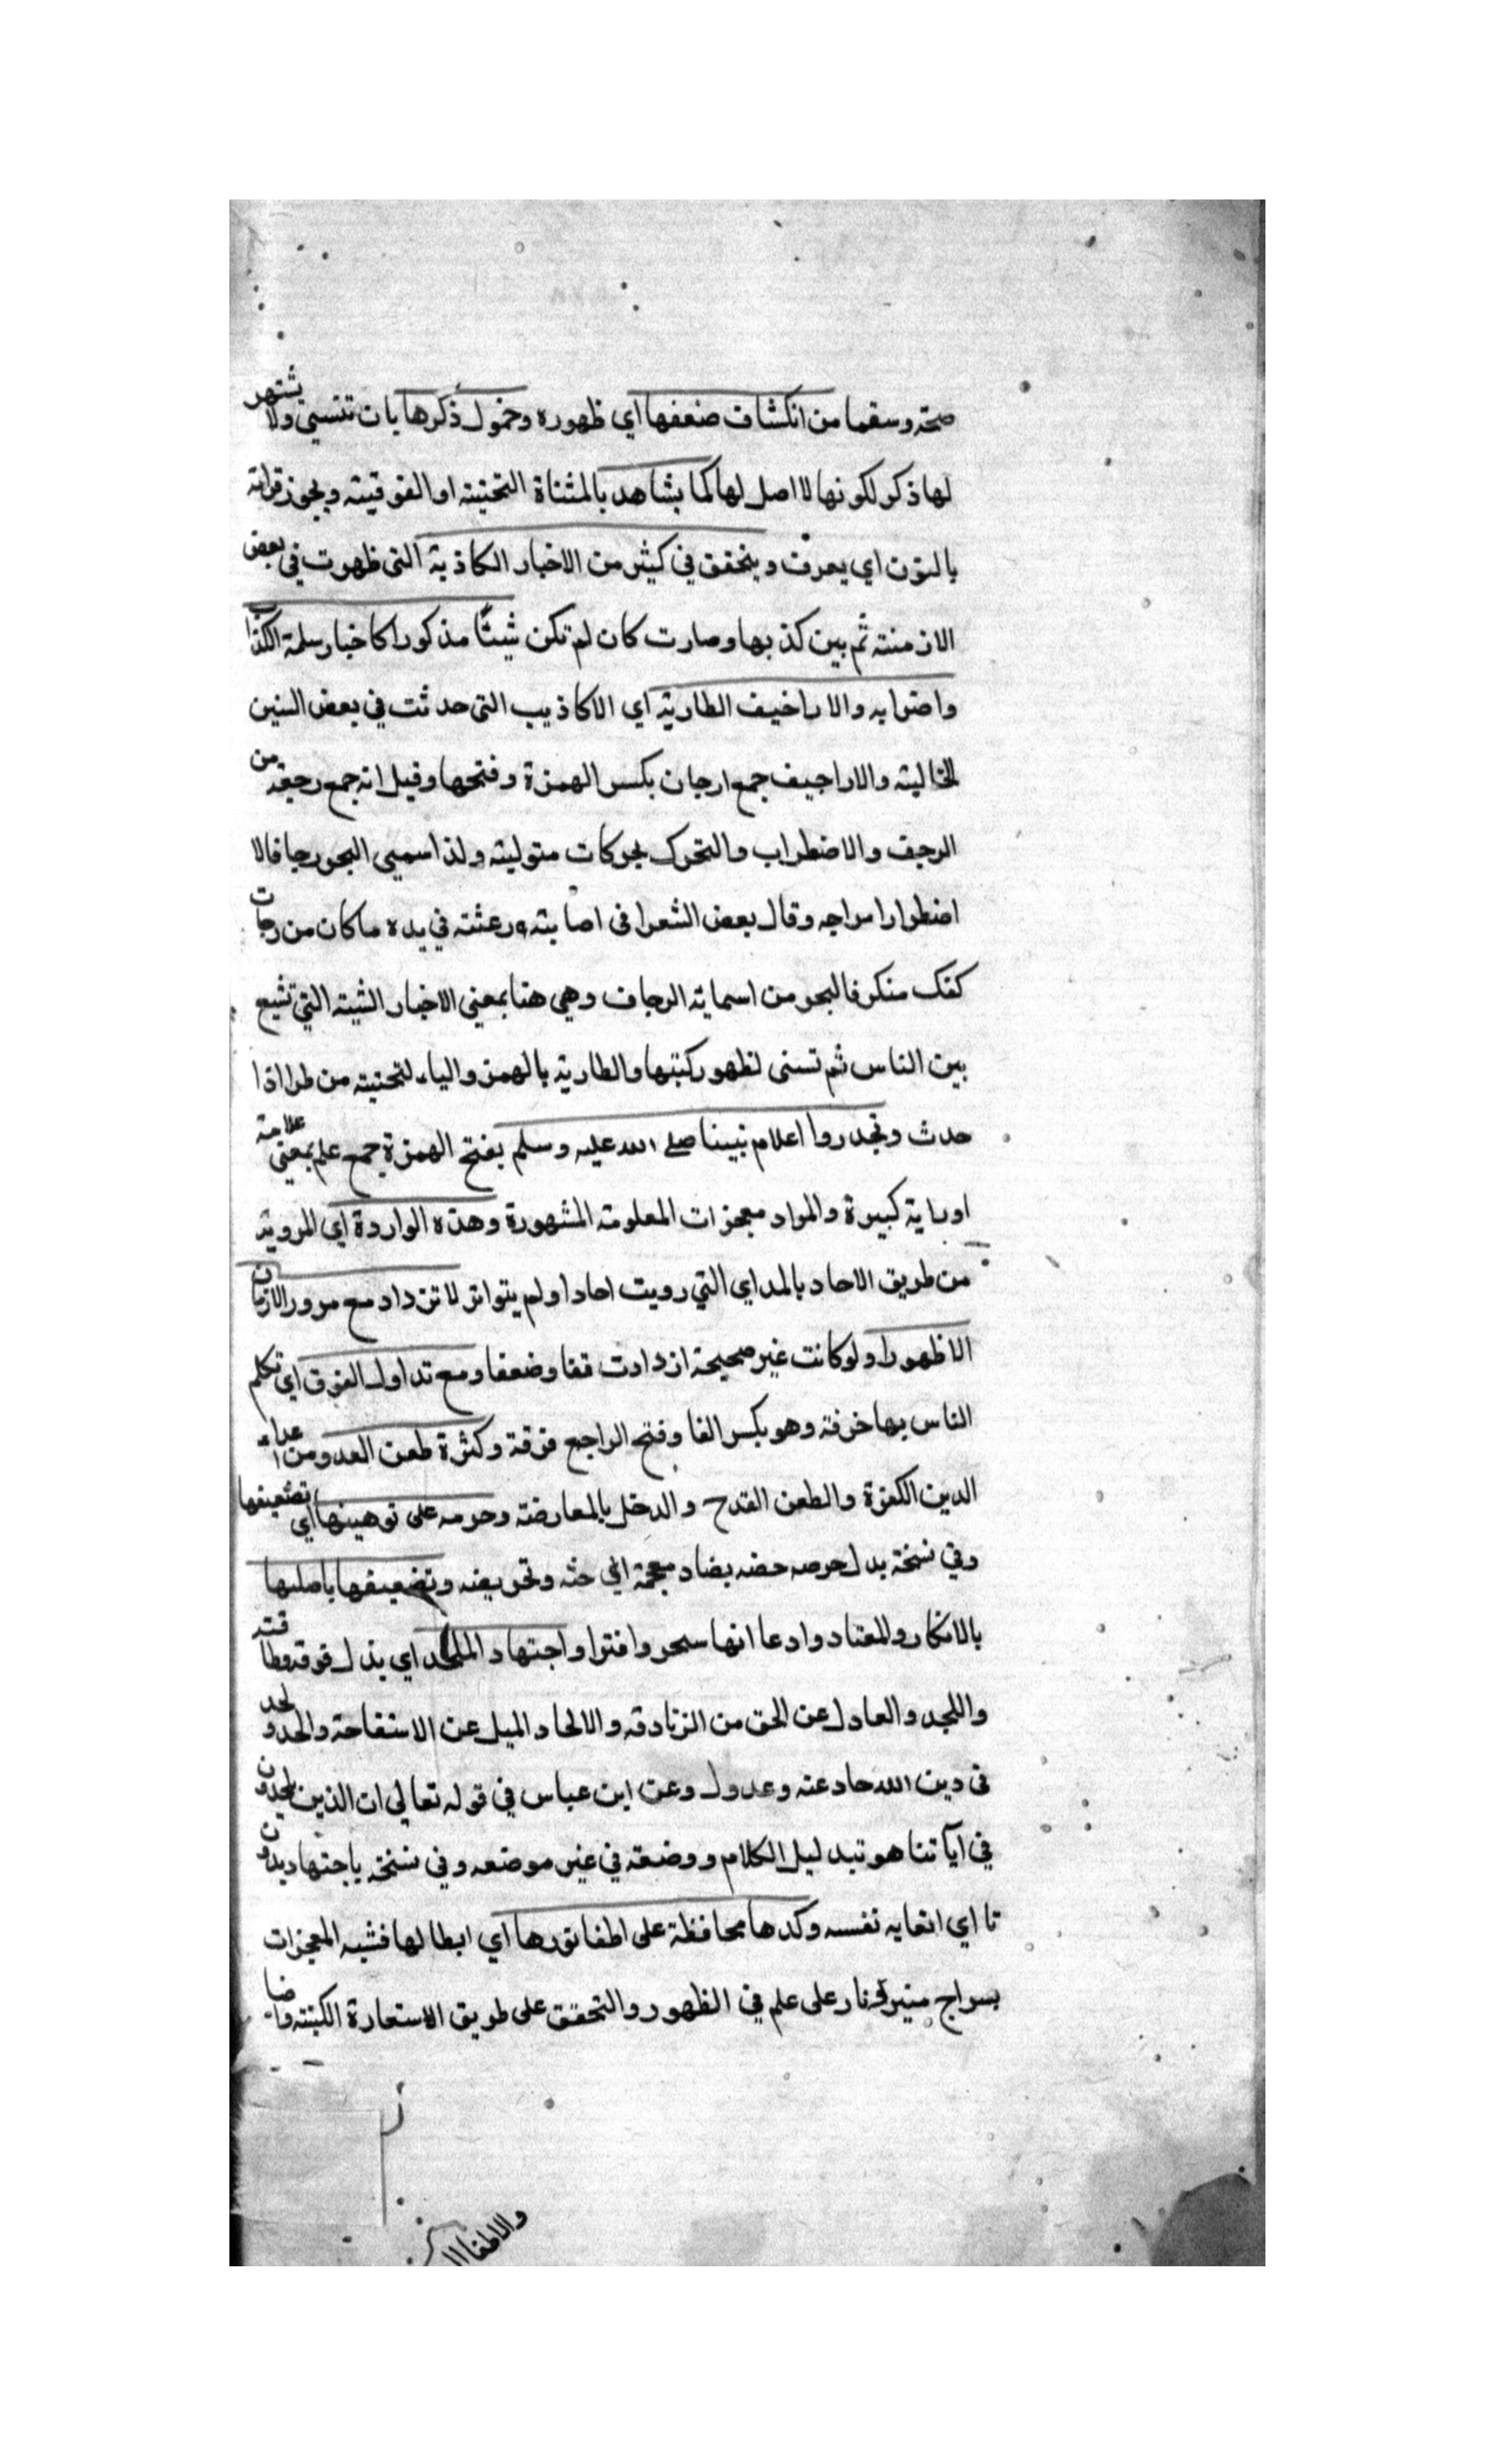 صحته وسقما من انكشاف ضعفها اي ظهوره وخمول ذكرها بات تنسي ولا يشتهر
لها ذكر لكونها لا اصل لها كما يشاهد بالمثناة التحتيته او الفوقيته ويجوز قراته
بالنون اي يعرف ويتحقق في كثير من الاخبار الكاذبة التى ظهرت في بعض
الازمنته ثم بين كذبها وصارت كان لم تكن شيئا مذكورا كاخبار سلمة الكذاب
واضرابه والاراخيف الطارية اي الاكاذيب التى حدثت في بعض السنين
الخاليته والاراجيف جمع ارجان بكسر الهمزة وفتحها وقيل انه جمع رجفه من
الرجف والاضطراب والتحرك بحركات متوليته ولذا سميى البحر رجافا لا
اضطرار امواجه وقال بعض الشعرا فى اصابته ورعشته في يده ما كان من رجات
كفك منكر فالبحر من اسمايه الرجاف وهي هنا بمعنى الاخبار الشيته التي تشيع
بين الناس ثم تسنى لظهور كتبها والطارية بالهمز والياء لتحنيته من طرا اذا
حدث وتجدروا اعلام نبينا صلے الله عليه وسلم بفتح الهمزة جمع علم بمعنى علامة
اوراية كبيرة والمراد معجزات المعلومته المشهورة وهذه الواردة اي المروية
من طريق الاحاد بالمداي التي رويت احادا ولم يتواتر لا تزداد مع مرور الازمان
الا ظهورا ولوكانت غير صحيحة ازدادت قفا وضعفا ومع تداول الفرق اي تكلم
الناس بها خرفة وهو بكسر الفا وفتح الراجع فرقة وكثرة طعن العدو من اعداء
الدين الكفرة والطعن القدح والدخل بالمعارضته وحرصه على توهينها اي تضعيفها
وفي نسخة بدل حرصه حضه بضاد معجمة اي حثه وتحريضه وتضعيفها باصلها
بالانكار والمعتاد وادعا انها سحر وافترا واجتهاد الملحد اي بذل فوقه وطاقته
واللجد والعادل عن الحق من الزنادقه والالحاد الميل عن الاستقاحة والحد ولحد
فى دين الله حاد عنه وعدول وعن ابن عباس في قوله تعالى ان الذين يلحدون
في آياتنا هو تبد ليل الكلام ووضعه في غير موضعه وفي نسخة ياجتهاد بدون
تا اي اتعابه نفسه وكدها محافظة على اطفا نورها اي ابطالها فشبه المعجزات
بسراج منير كنار على علم في الظهور والتحقق على طريق الاستعارة الكنيته واضا
والاطفا